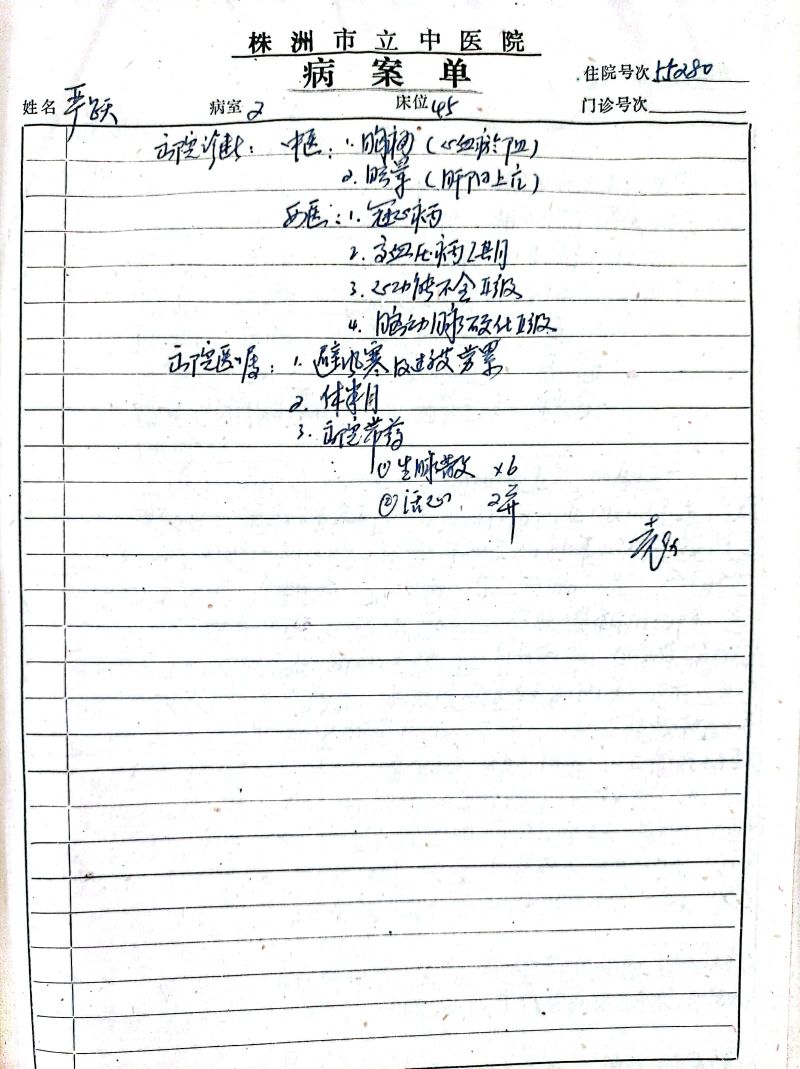 株洲市立中医院
病案单
住院号次55280
姓名 严跃 病室2 床位45 门诊号次
出院诊断：中医：1.胸痹（心血瘀阻）
2.眩晕（肝阳上亢）
西医：1.冠心病
2.高血压病Ⅱ期
3.心功能不全Ⅱ级
4.脑动脉硬化Ⅱ级
出院医嘱：1.避风寒及过劳累
2.休半月
3.出院带药
①生脉散 ×6
②活心 2并